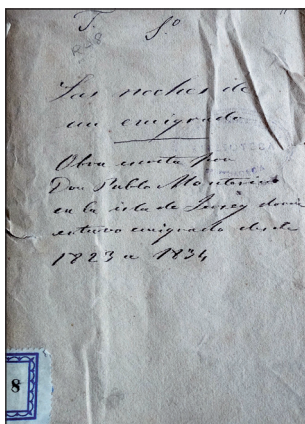 T. S.º
R-8
Las noches de
un emigrado
Obra escrita por
Don Pablo Montesino
en la isla de Jersey donde
estuvo emigrado desde
1823 a 1834
8